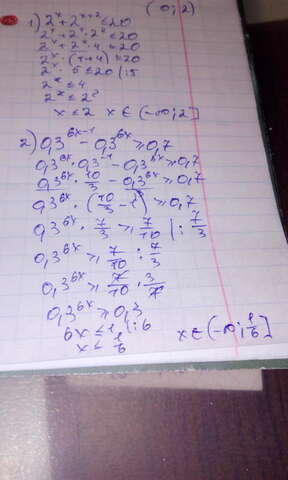 (0; 2)
1) 2^x + 2^(x+2) ≤ 20
2^x + 2^x · 2^2 ≤ 20
2^x + 2^x · 4 ≤ 20
2^x · (1+4) ≤ 20
2^x · 5 ≤ 20 | :5
2^x ≤ 4
2^x ≤ 2^2
x ≤ 2 x ∈ (-∞; 2]
2) 0,3^(6x-1) - 0,3^(6x) ≥ 0,7
0,3^(6x) · 0,3^(-1) - 0,3^(6x) ≥ 0,7
0,3^(6x) · 10/3 - 0,3^(6x) ≥ 0,7
0,3^(6x) · (10/3 - 1) ≥ 0,7
0,3^(6x) · 7/3 ≥ 7/10 | : 7/3
0,3^(6x) ≥ 7/10 : 7/3
0,3^(6x) ≥ 7/10 · 3/7
0,3^(6x) ≥ 0,3
6x ≤ 1 | :6
x ≤ 1/6 x ∈ (-∞; 1/6]